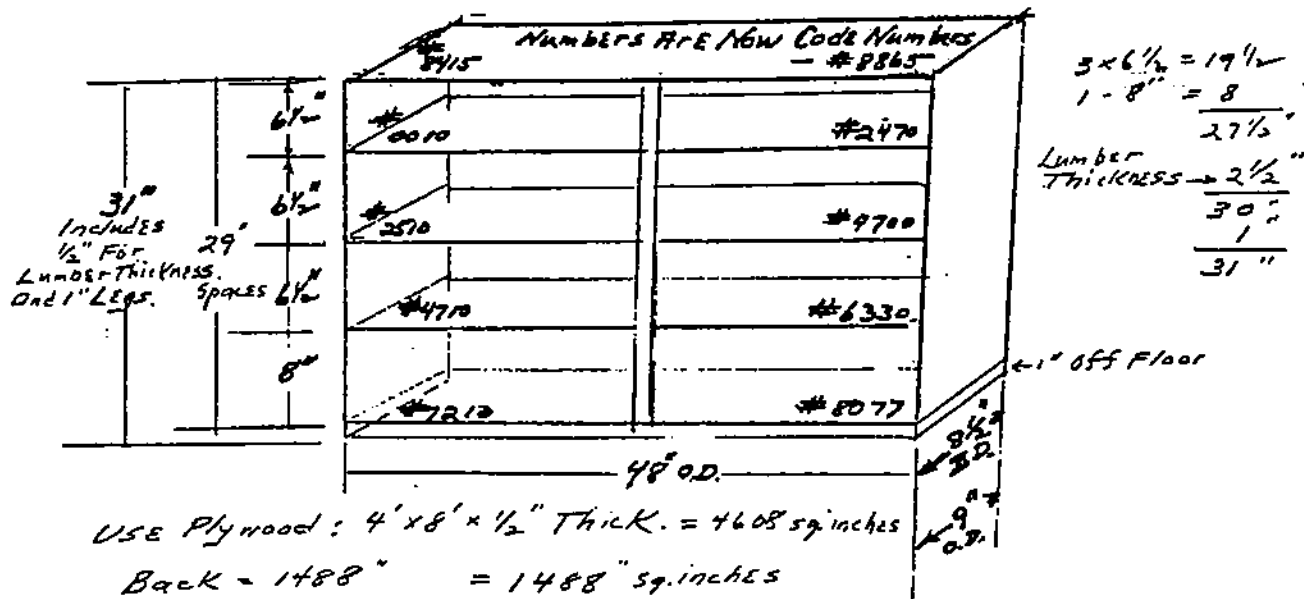 Numbers Are Now Code Numbers
# 8415
- #8865
6½"
# 0010
#2470
6½"
# 2510
#4700
31"
Includes
½" For
Lumber Thickness.
And 1" Legs.
29"
Spaces
6½"
#4710
#6330.
8"
#7210
#8077
3 x 6½ = 19½
1 - 8" = 8
27½"
Lumber
Thickness → 2½"
30"
1"
31"
←1" Off Floor
8½"
48" O.D.
9"
O.D.
Use Plywood: 4' x 8' x ½" Thick. = 4608 sq. inches
Back = 1488" = 1488" sq. inches